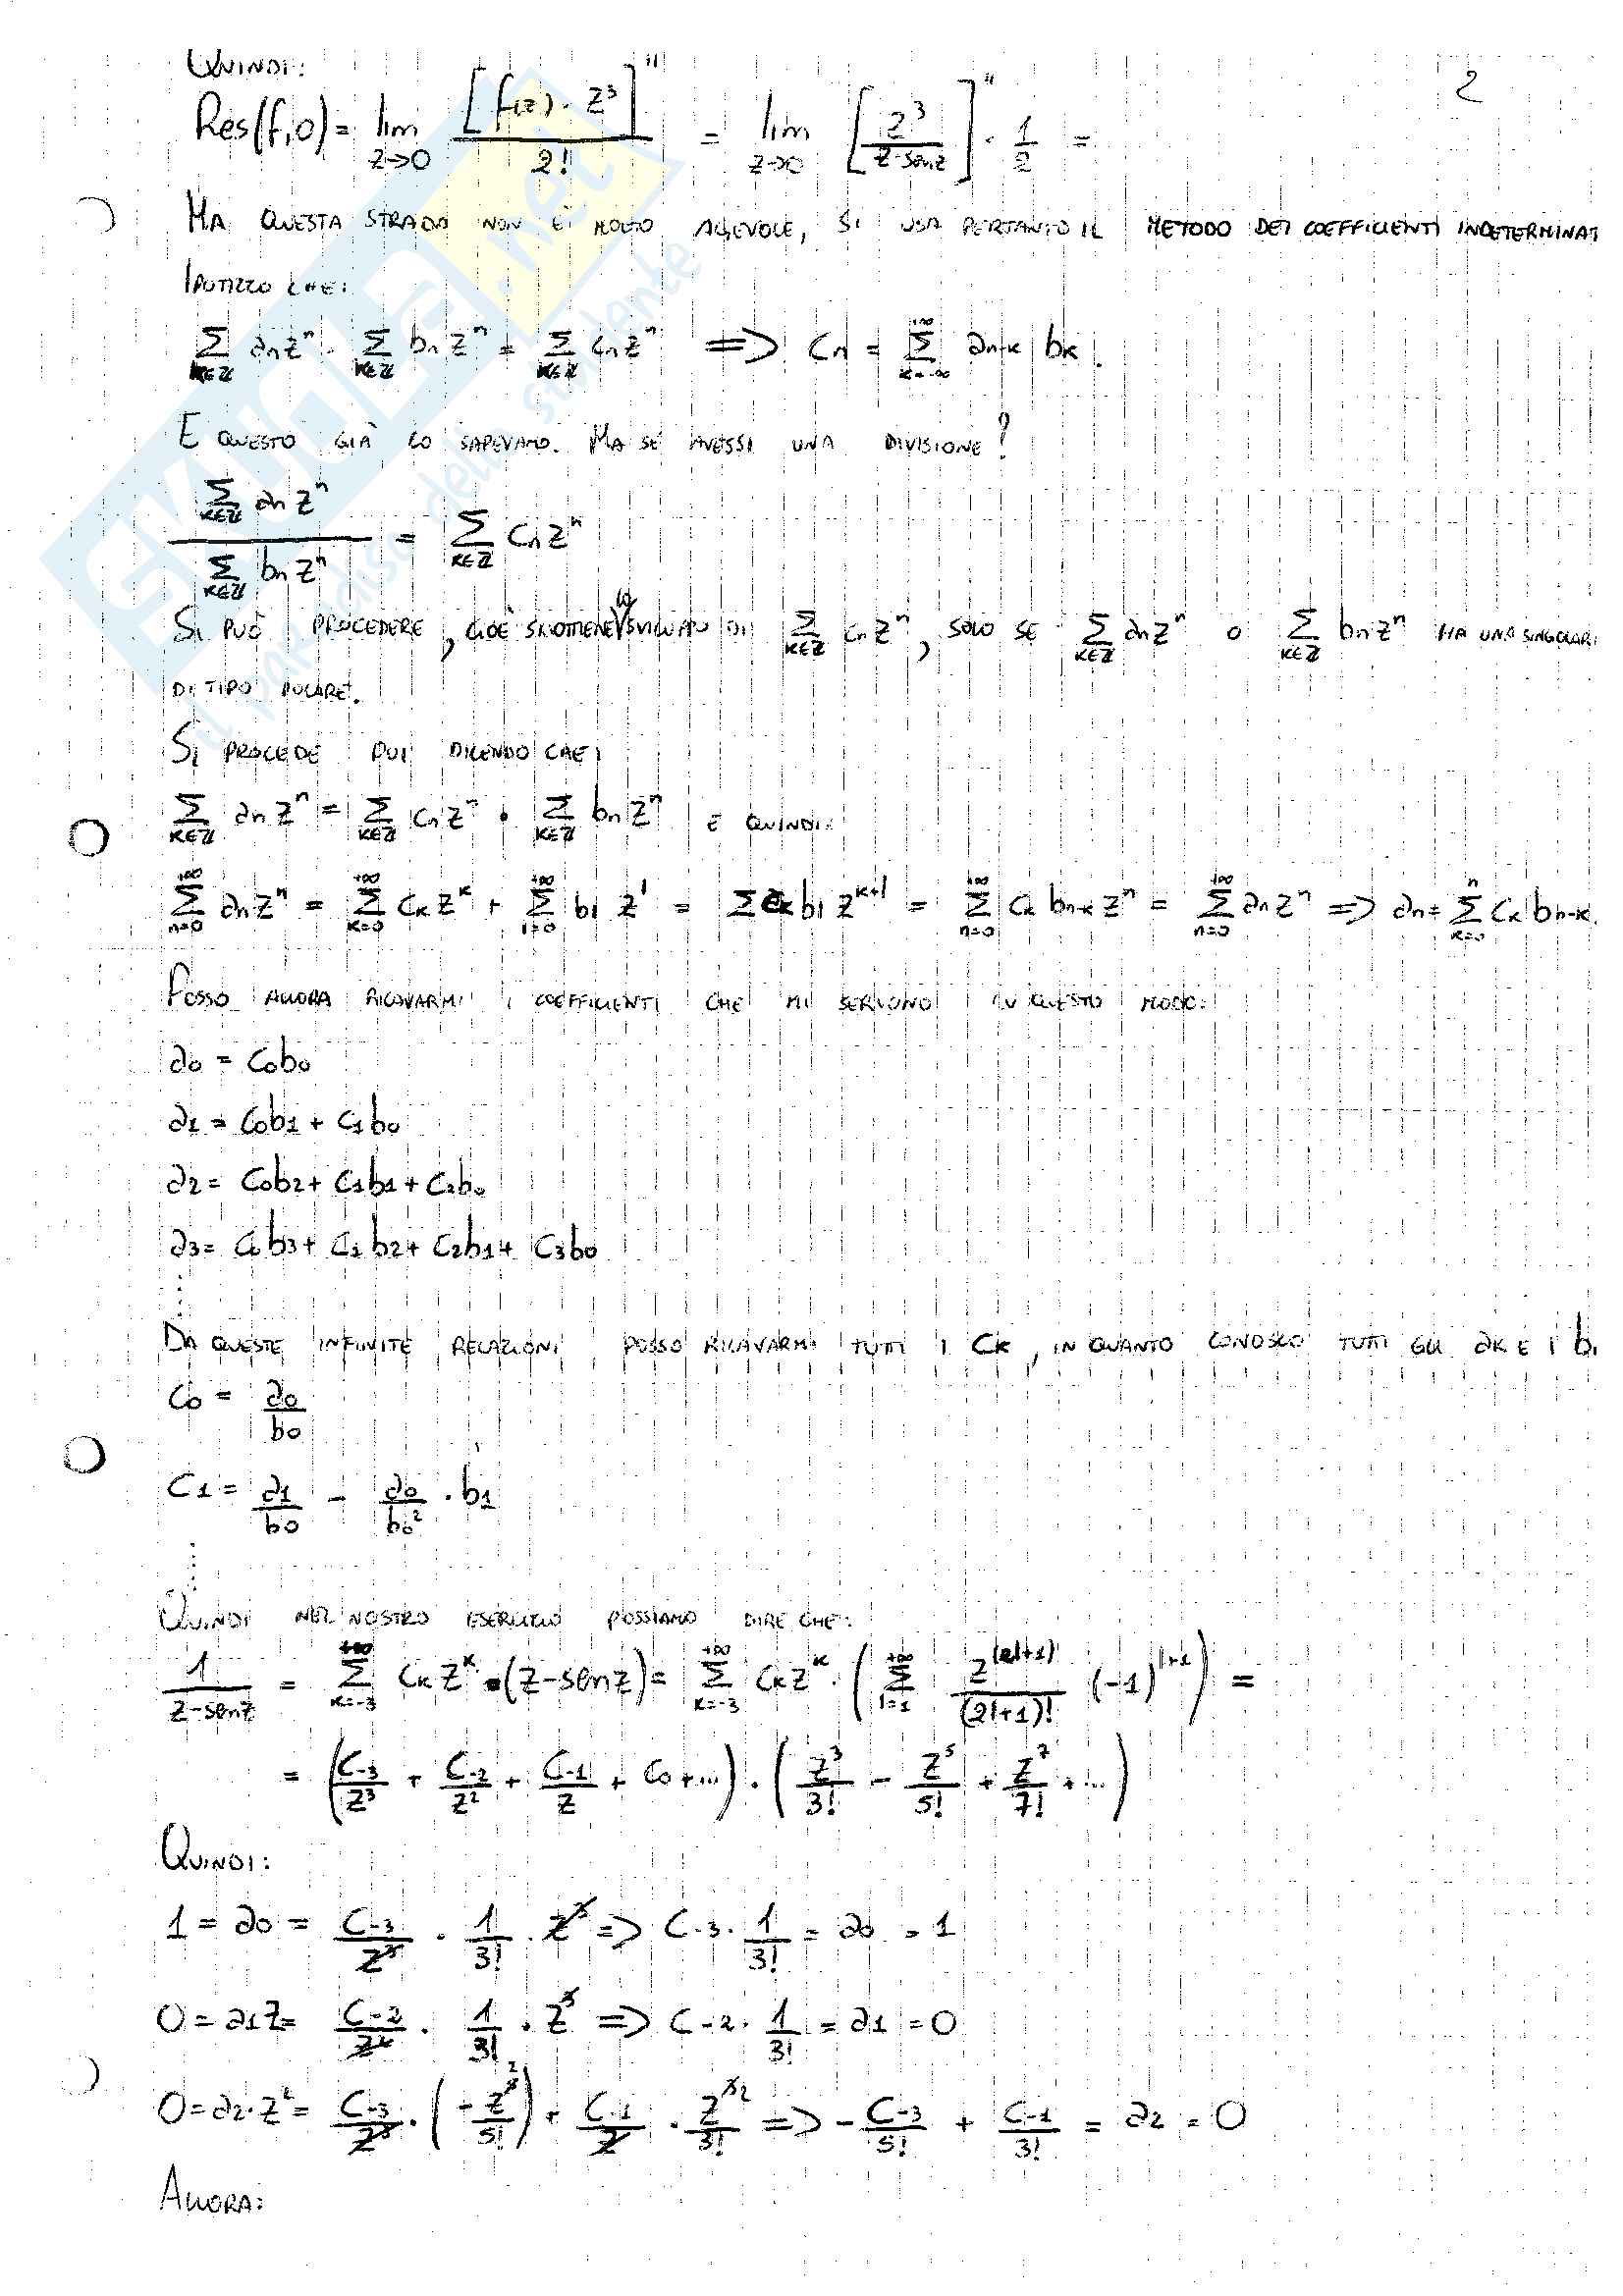 QUINDI:
2
Res(f,0) = lim z→0 [f(z)·z³]'' / 2! = lim z→0 [z³ / (z-senz)]'' · 1/2 =
MA QUESTA STRADA NON E' MOLTO AGEVOLE, SI USA PERTANTO IL METODO DEI COEFFICIENTI INDETERMINAT
IPOTIZZO CHE:
Σ k∈Z an zⁿ · Σ k∈Z bn zⁿ = Σ k∈Z cn zⁿ => cn = Σ k=-∞ +∞ an-k bk.
E QUESTO GIÀ LO SAPEVAMO. MA SE AVESSI UNA DIVISIONE?
Σ k∈Z an zⁿ / Σ k∈Z bn zⁿ = Σ k∈Z cn zⁿ
SI PUÒ PROCEDERE, CIOÈ SI OTTIENE LO SVILUPPO DI Σ k∈Z cn zⁿ, SOLO SE Σ k∈Z an zⁿ O Σ k∈Z bn zⁿ HA UNA SINGOLARI
DI TIPO POLARE.
SI PROCEDE POI DICENDO CHE:
Σ k∈Z an zⁿ = Σ k∈Z cn zⁿ · Σ k∈Z bn zⁿ E QUINDI:
Σ n=0 +∞ an zⁿ = Σ k=0 +∞ ck z^k + Σ l=0 +∞ bl z^l = Σ ck bl z^k+l = Σ n=0 +∞ ck bn-k zⁿ = Σ n=0 +∞ an zⁿ => an = Σ k=0 n ck bn-k.
POSSO ALLORA RICAVARMI I COEFFICIENTI CHE MI SERVONO IN QUESTO MODO:
a0 = c0b0
a1 = c0b1 + c1b0
a2 = c0b2 + c1b1 + c2b0
a3 = c0b3 + c1b2 + c2b1 + c3b0
DA QUESTE INFINITE RELAZIONI POSSO RICAVARMI TUTTI I CK, IN QUANTO CONOSCO TUTTI GLI aK E I bl
c0 = a0/b0
c1 = a1/b0 - a0/b0² · b1
QUINDI NEL NOSTRO ESERCIZIO POSSIAMO DIRE CHE:
1/(z-senz) = Σ k=-3 +∞ ck z^k · (z-senz) = Σ k=-3 +∞ ck z^k · (Σ l=1 +∞ z^(2l+1) / (2l+1)! (-1)^l+1) =
= (c-3/z³ + c-2/z² + c-1/z + c0 + ...) · (z³/3! - z⁵/5! + z⁷/7! + ...)
QUINDI:
1 = a0 = c-3/z³ · 1/3! · z³ => c-3 · 1/3! = a0 = 1
0 = a1z = c-2/z² · 1/3! · z³ => c-2 · 1/3! = a1 = 0
0 = a2·z² = c-3/z³ · (-z⁵/5!) + c-1/z · z³/3! => -c-3/5! + c-1/3! = a2 = 0
ALLORA: